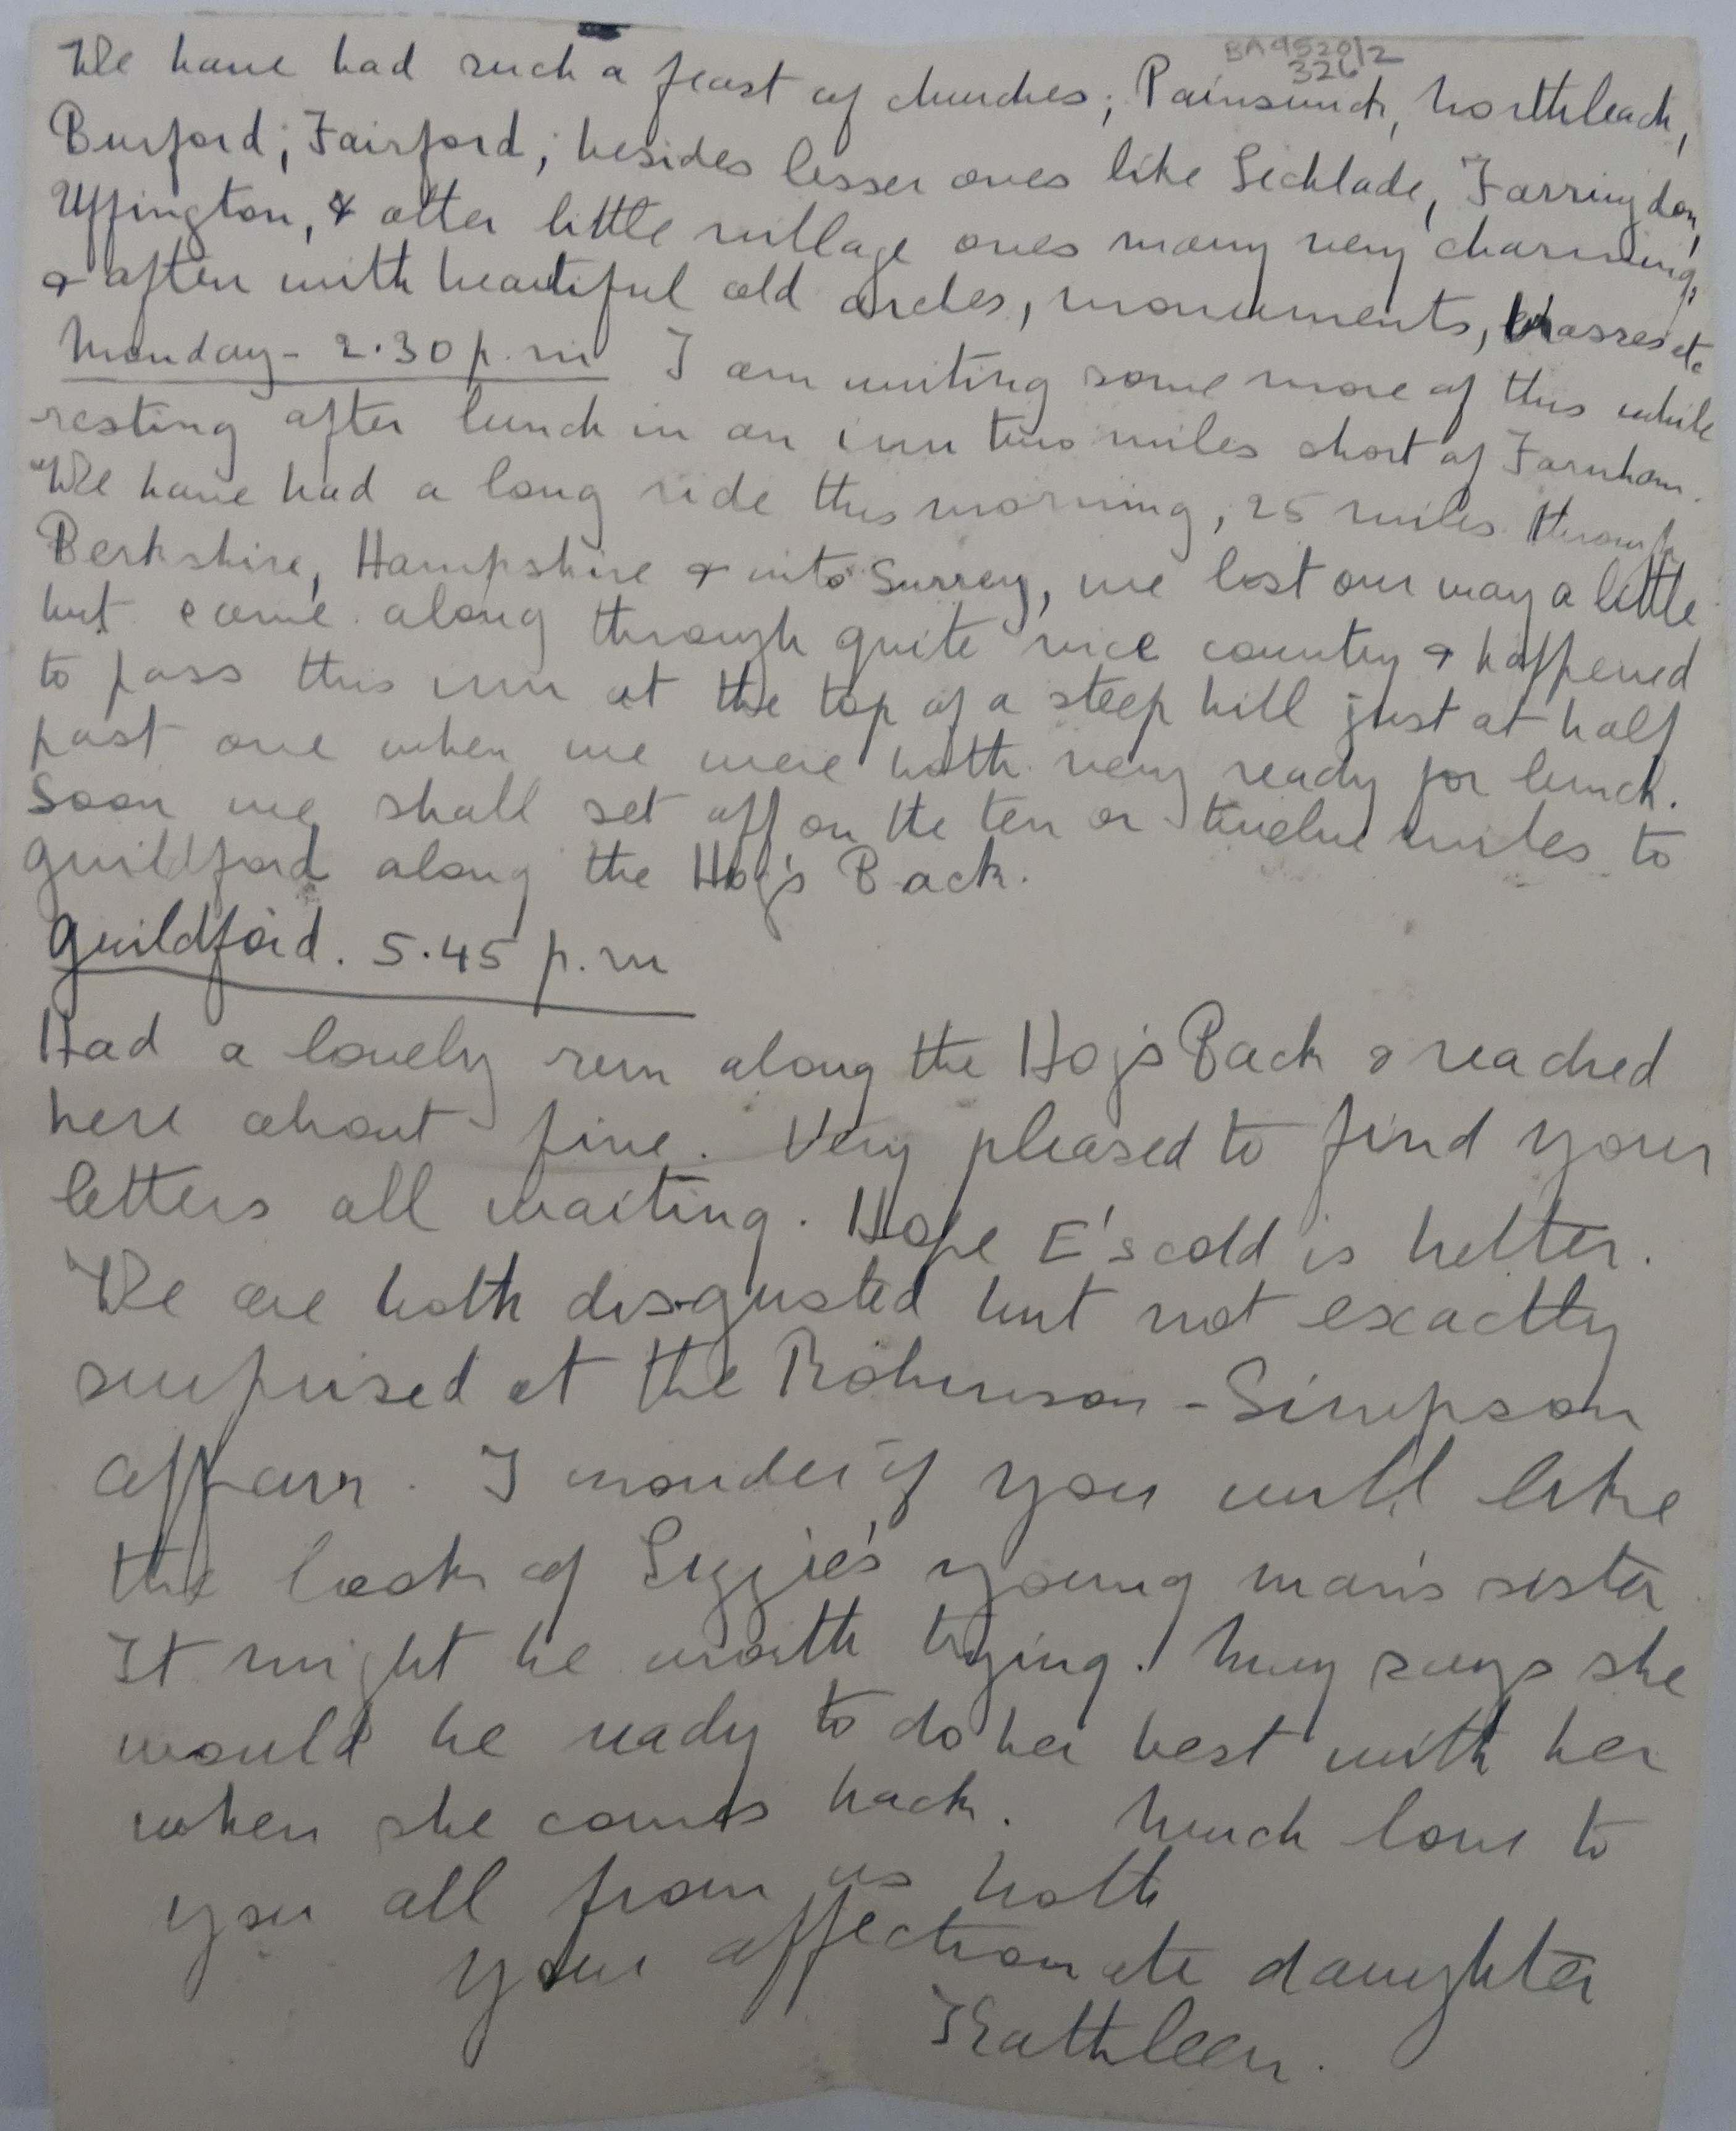 BA9520/2
326
We have had such a feast of churches; Painswick, Northleach,
Burford; Fairford; besides lesser ones like Lechlade, Farringdon,
Uffington, & other little village ones many very charming,
& often with beautiful old arches, monuments, brasses etc
Monday - 2.30 p.m I am writing some more of this while
resting after lunch in an inn two miles short of Farnham.
We have had a long ride this morning, 25 miles through
Berkshire, Hampshire & into Surrey, we lost our way a little
but came along through quite nice country & happened
to pass this inn at the top of a steep hill just at half
past one when we were both very ready for lunch.
Soon we shall set off on the ten or twelve miles to
Guildford along the Hog's Back.
Guildford. 5.45 p.m
Had a lovely run along the Hog's Back & reached
here about five. Very pleased to find your
letters all waiting. Hope E's cold is better.
We are both disgusted but not exactly
surprised at the Robinson - Simpson
affair. I wonder if you will like
the look of Lizzie's young man's sister
It might be worth trying. May says she
would be ready to do her best with her
when she comes back. Much love to
you all from us both
your affectionate daughter
Kathleen.